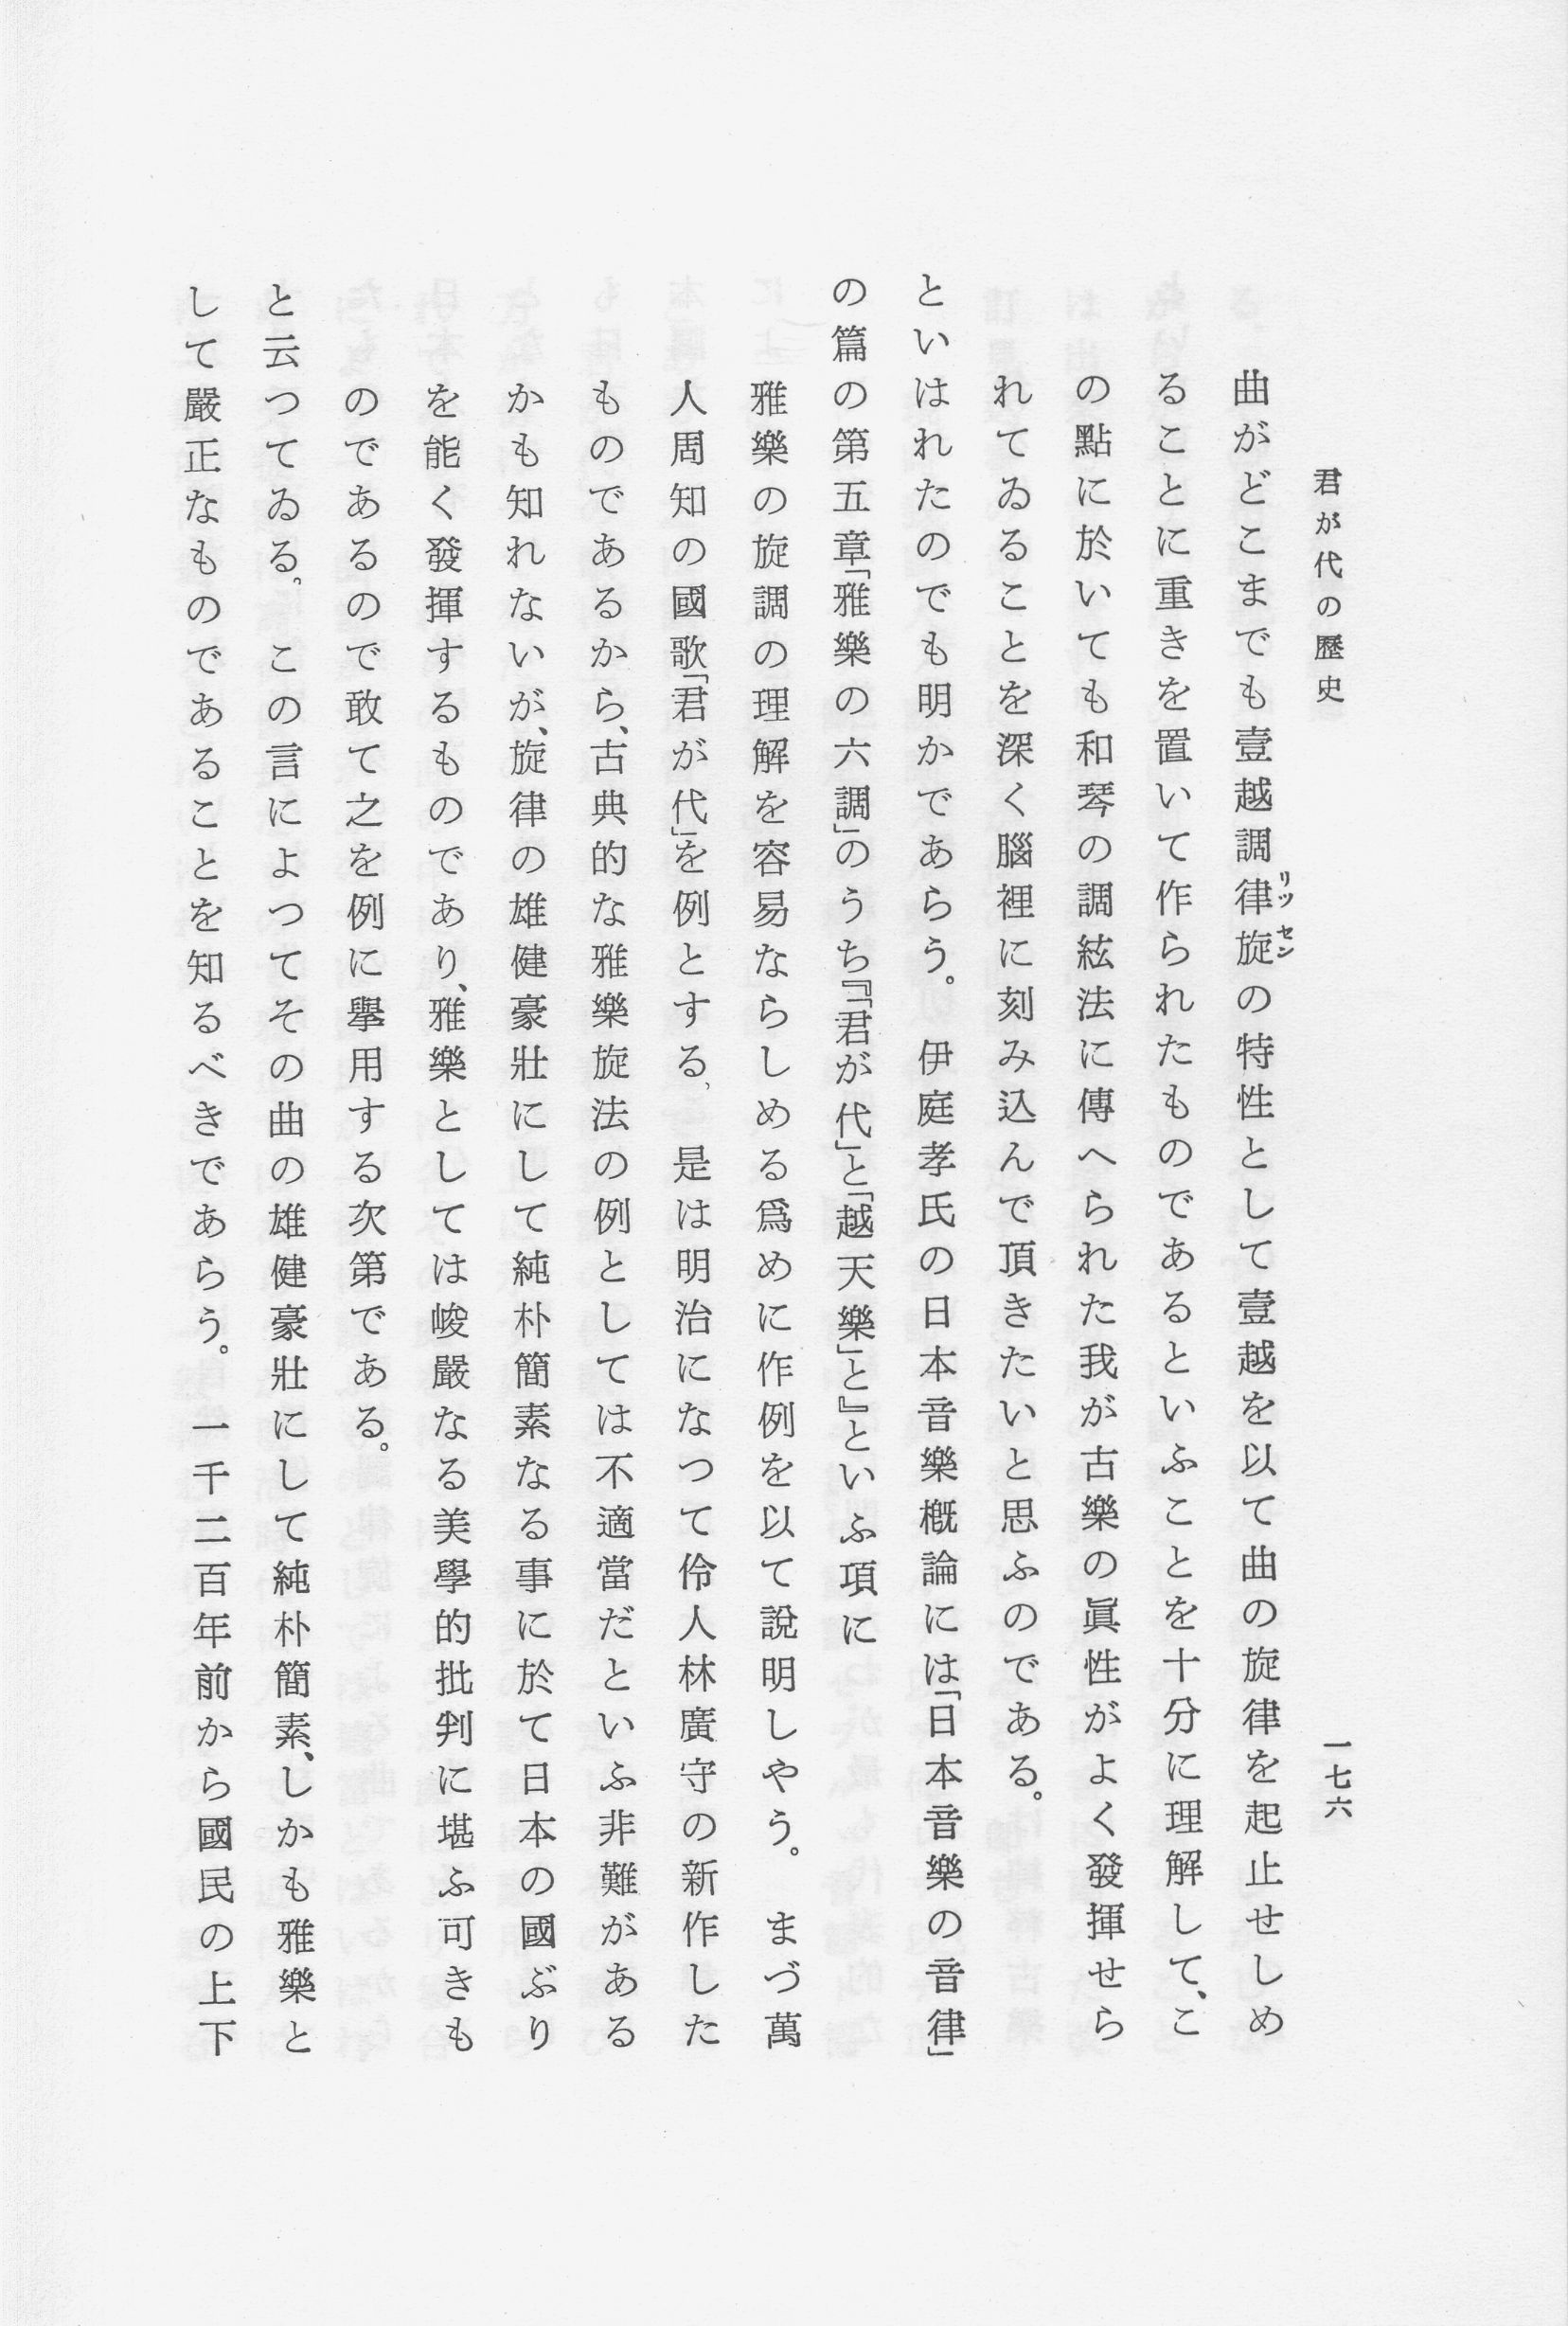 君が代の歷史
一七六
曲がどこまでも壹越調律旋の特性として壹越を以て曲の旋律を起止せしめ
リッセン
ることに重きを置いて作られたものであるといふことを十分に理解して、こ
の點に於いても和琴の調絃法に傳へられた我が古樂の眞性がよく發揮せら
れてゐることを深く腦裡に刻み込んで頂きたいと思ふのである。
といはれたのでも明かであらう。　伊庭孝氏の日本音樂槪論には「日本音樂の音律」
の篇の第五章「雅樂の六調」のうち『「君が代」と「越天樂」と』といふ項に
雅樂の旋調の理解を容易ならしめる爲めに作例を以て說明しやう。　まづ萬
人周知の國歌「君が代」を例とする。　是は明治になつて伶人林廣守の新作した
ものであるから、古典的な雅樂旋法の例としては不適當だといふ非難がある
かも知れないが、旋律の雄健豪壯にして純朴簡素なる事に於て日本の國ぶり
を能く發揮するものであり、雅樂としては峻嚴なる美學的批判に堪ふ可きも
のであるので敢て之を例に擧用する次第である。
と云つてゐる。　この言によつてその曲の雄健豪壯にして純朴簡素、しかも雅樂と
して嚴正なものであることを知るべきであらう。　一千二百年前から國民の上下